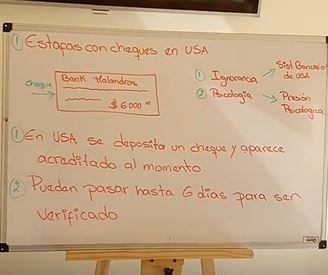 ① Estafas con cheques en USA
cheque → Bank Malandros
$ 6.000
① Ignorancia → Sist. Bancario de USA
② Psicologia → Presión Psicologica
① En USA se deposita un cheque y aparece
acreditado al momento.
② Pueden pasar hasta 6 dias para ser
verificado